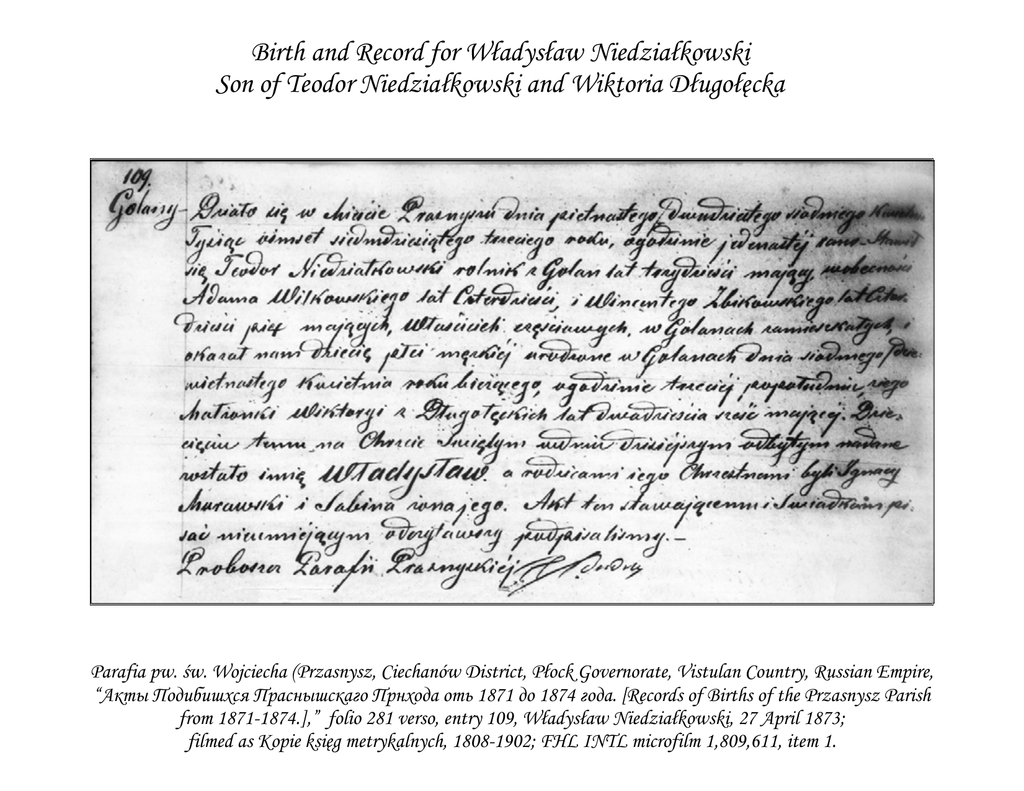 Birth and Record for Władysław Niedziałkowski
Son of Teodor Niedziałkowski and Wiktoria Długołęcka
109.
Golany
Działo się w Mieście Przasnyszu dnia piętnastego/dwudziestego siódmego
Tysiąc ośmset siedmdziesiątego trzeciego roku, o godzinie jedenastej rano
się Teodor Niedziałkowski rolnik z Golan lat trzydzieści mający, w obecności
Adama Wilkowskiego lat czterdzieści, i Wincentego Zbikowskiego lat czter-
dzieści pięć mających, Właścicieli częściowych, w Golanach zamieszkałych, i
okazał nam dziecię płci męzkiej urodzone w Golanach dnia siódmego/dzie-
więtnastego Kwietnia roku bieżącego, o godzinie trzeciej popołudniu, z jego
Małżonki Wiktoryi z Długołęckich lat dwadzieścia sześć mającej. Dzie-
cięciu temu na Chrzcie Świętym w dniu dzisiejszym odbytym nadane
zostało imię Władysław. a rodzicami jego Chrzestnemi byli Ignacy
Murawski i Sabina żona jego. Akt ten stawającemu i Świadkom pi-
sać nieumiejącym odczytawszy podpisaliśmy.—
Proboszcz Parafii Przasnyskiej
Parafia pw. św. Wojciecha (Przasnysz, Ciechanów District, Płock Governorate, Vistulan Country, Russian Empire,
“Акты Подибишхся Праснышскаго Прнхода оть 1871 до 1874 года. [Records of Births of the Przasnysz Parish
from 1871-1874.],” folio 281 verso, entry 109, Władysław Niedziałkowski, 27 April 1873;
filmed as Kopie ksiąg metrykalnych, 1808-1902; FHL INTL microfilm 1,809,611, item 1.